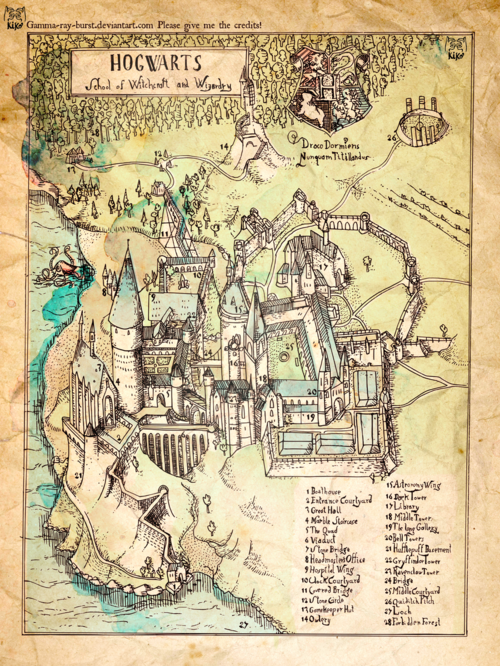 KiKo
Gamma-ray-burst.deviantart.com Please give me the credits!
KiKo
HOGWARTS
School of Witchcraft and Wizardry
Draco Dormiens
Nunquam Titillandus
28
13
12
14
26
17
20
19
18
25
27
21
1 Boathouse
2 Entrance Courtyard
3 Great Hall
4 Marble Staircase
5 The Quad
6 Viaduct
7 Stone Bridge
8 Headmasters Office
9 Hospital Wing
10 Clock Courtyard
11 Covered Bridge
12 Stone Circle
13 Gamekeeper Hut
14 Owlery
15 Astronomy Wing
16 Dark Tower
17 Library
18 Middle Tower
19 The long Gallery
20 Bell Towers
21 Hufflepuff Basement
22 Gryffindor Tower
23 Ravenclaw Tower
24 Bridge
25 Middle Courtyard
26 Quidditch Pitch
27 Loch
28 Forbidden Forest